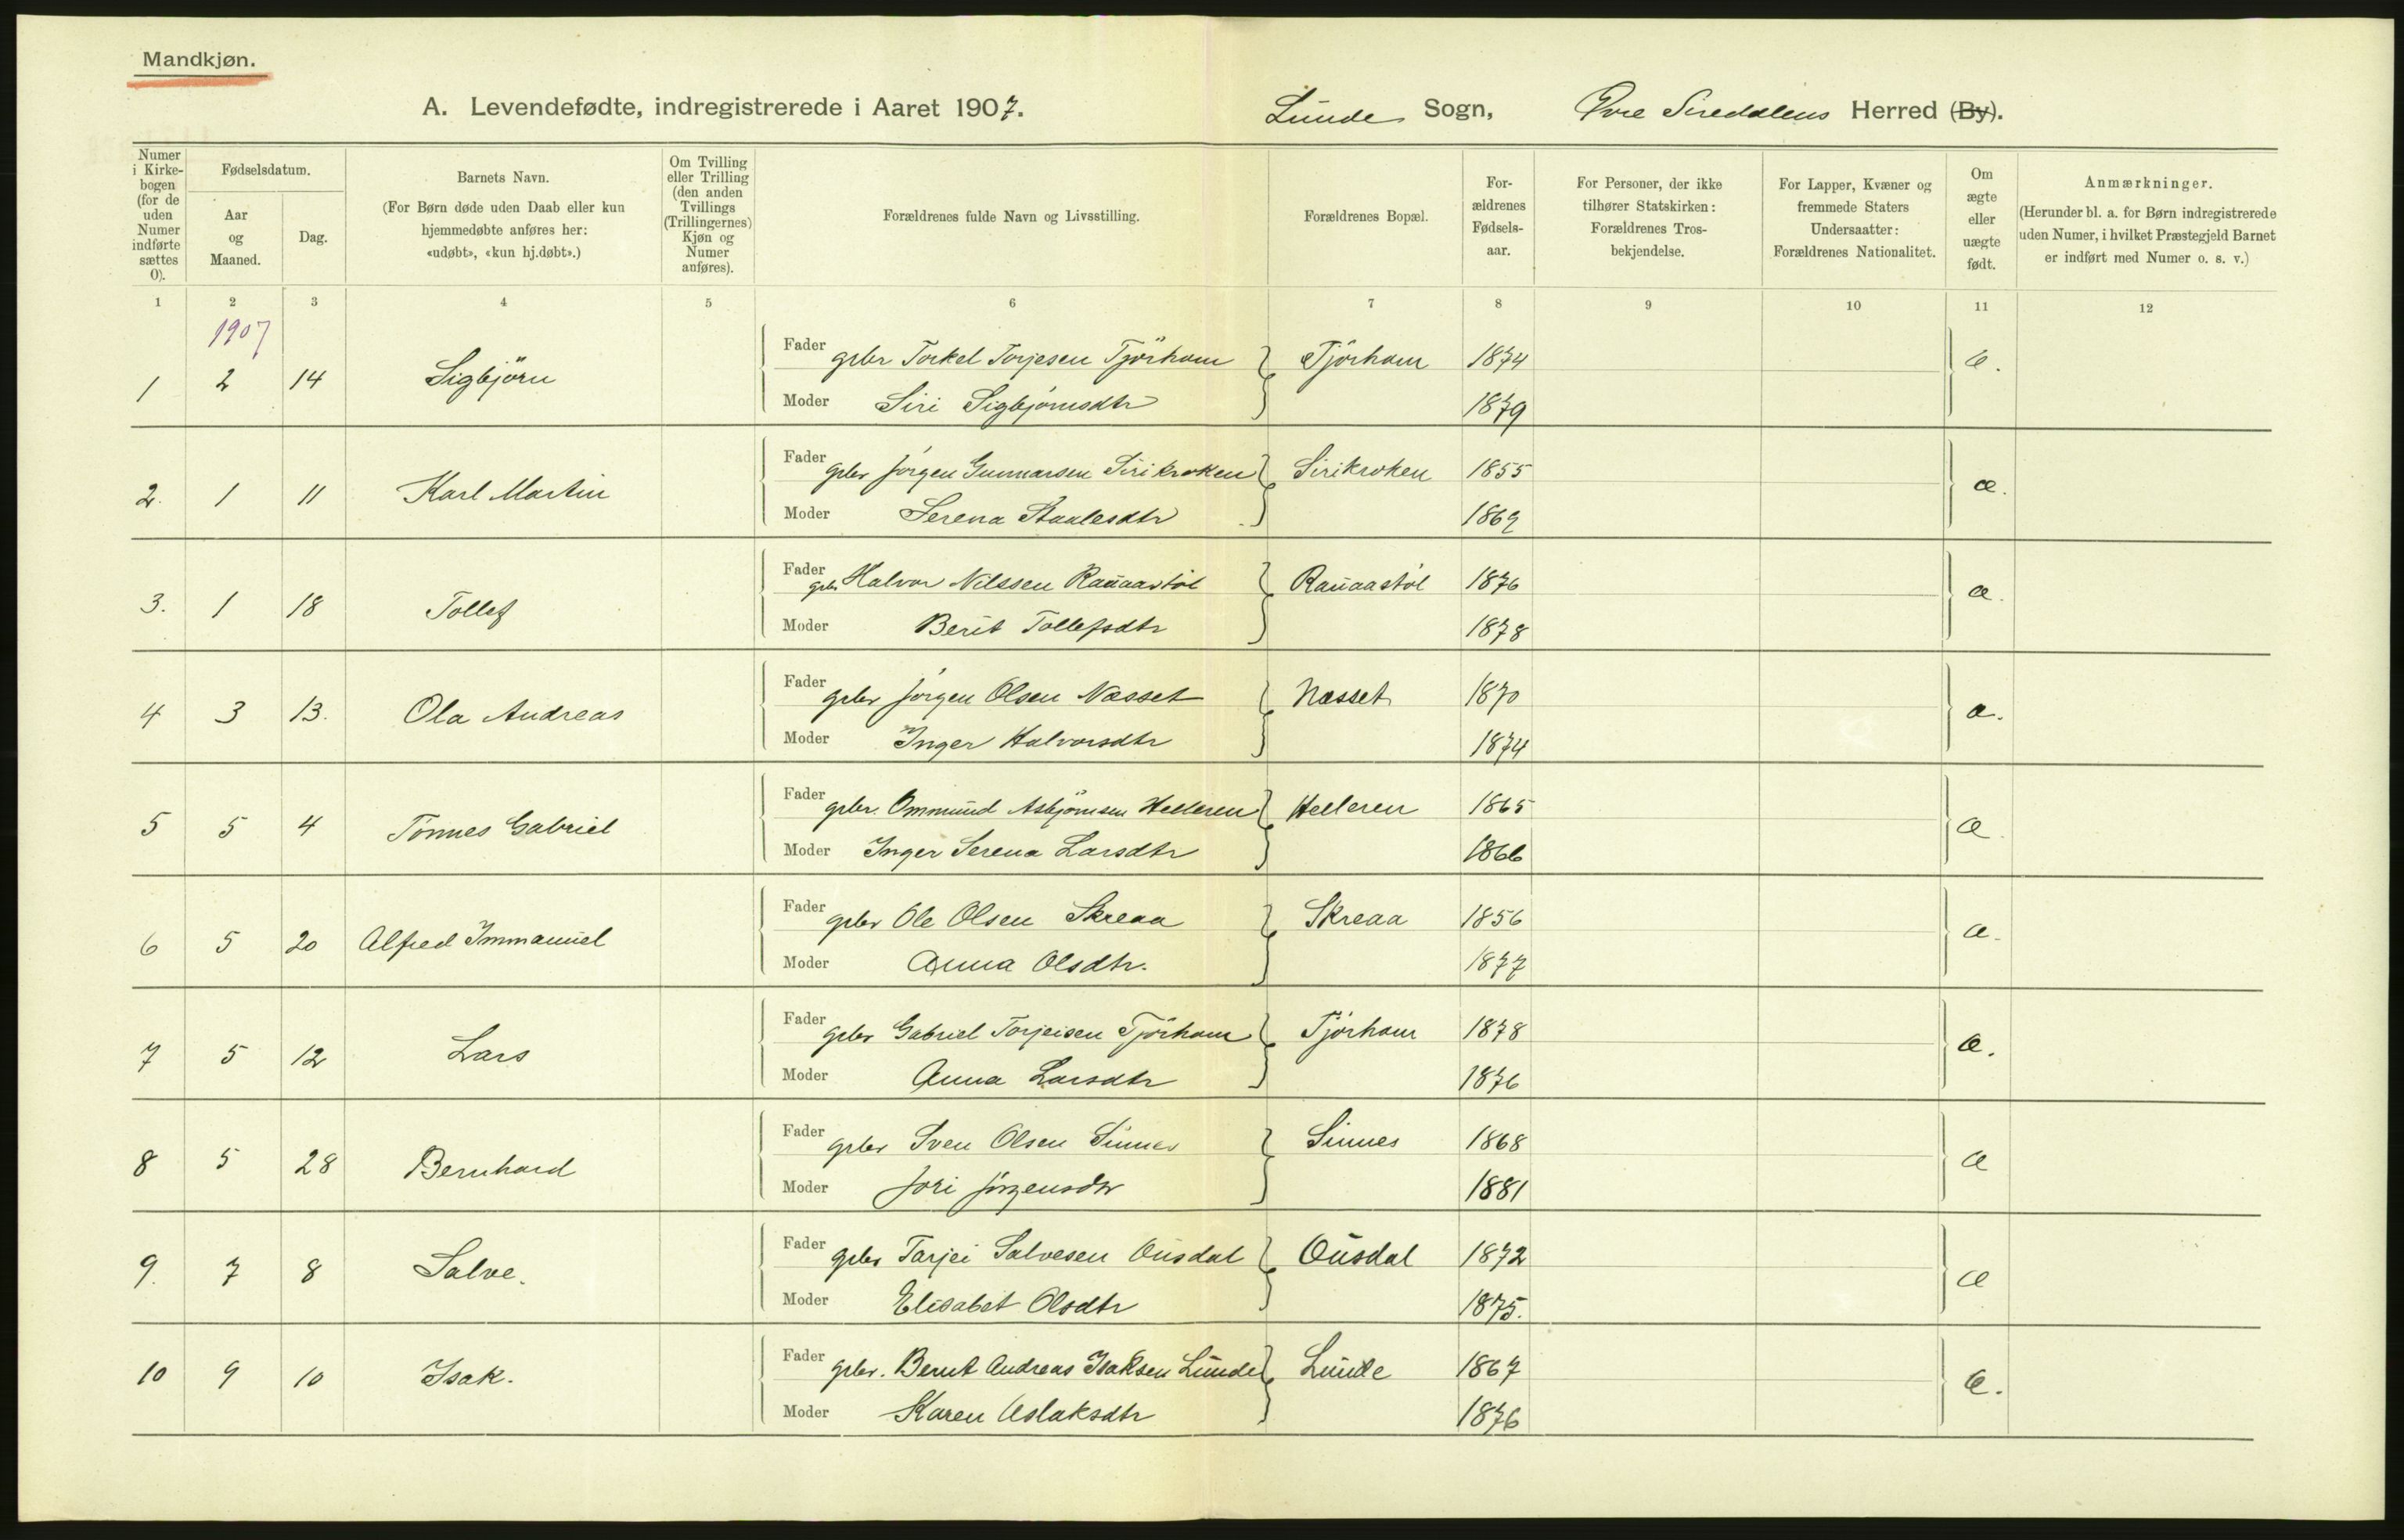 Mandkjøn.
A. Levendefødte, indregistrerede i Aaret 1907. Lunde Sogn, Øvre Siredalens Herred (By).
Numer i Kirke-bogen (for de uden Numer indførte sættes 0).
Fødselsdatum.
Aar og Maaned.
Dag.
Barnets Navn.
(For Børn døde uden Daab eller kun hjemmedøbte anføres her: «udøbt», «kun hj.døbt».)
Om Tvilling eller Trilling (den anden Tvillings (Trillingernes) Kjøn og Numer anføres).
Forældrenes fulde Navn og Livsstilling.
Forældrenes Bopæl.
For-ældrenes Fødsels-aar.
For Personer, der ikke tilhører Statskirken: Forældrenes Tros-bekjendelse.
For Lapper, Kvæner og fremmede Staters Undersaatter: Forældrenes Nationalitet.
Om ægte eller uægte født.
Anmærkninger.
(Herunder bl. a. for Børn indregistrerede uden Numer, i hvilket Præstegjeld Barnet er indført med Numer o. s. v.)
1 2 3 4 5 6 7 8 9 10 11 12
1907
1 2 14 Sigbjörn Fader gbr Torkel Torjesen Tjörhom Tjörhom 1874 æ.
Moder Siri Sigbjörnsdtr 1879
2. 1 11 Karl Martin Fader gbr Jörgen Gunnarsen Sirikroken Sirikroken 1855 æ.
Moder Serena Staalesdtr 1869
3. 1 18 Tollef Fader gbr Halvor Nilssen Rauaastöl Rauaastöl 1876 æ.
Moder Berit Tollefsdtr 1878
4 3 13. Ola Andreas Fader gbr Jörgen Olsen Næsset Næsset 1870 æ.
Moder Inger Halvorsdtr 1874
5 5 4 Tönnes Gabriel Fader gbr. Ommund Asbjörnsen Helleren Helleren 1865 æ
Moder Inger Serena Larsdtr 1866
6 5 20 Alfred Immanuel Fader gbr Ole Olsen Skreaa Skreaa 1856 æ.
Moder Anna Olsdtr. 1877
7 5 12 Lars Fader gbr Gabriel Torjeisen Tjörhom Tjörhom 1878 æ.
Moder Anna Larsdtr 1876
8 5 28 Bernhard Fader gbr Sven Olsen Sinnes Sinnes 1868 æ
Moder Jori Jörgensdtr 1881
9. 7 8 Salve. Fader gbr Tarjei Salvesen Ousdal Ousdal 1872 æ
Moder Elisabet Olsdtr 1875.
10 9 10 Isak. Fader gbr. Bernt Andreas Isaksen Lunde Lunde 1867 æ.
Moder Karen Aslaksdtr 1876